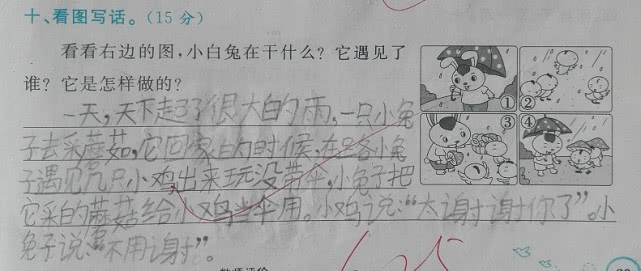 十、看图写话。（15 分）
看看右边的图，小白兔在干什么？它遇见了
谁？它是怎样做的？
一天，天下起了很大的雨，一只小兔
子去采蘑菇，它回家的时候，在路小兔
子遇见几只小鸡出来玩没带伞，小兔子把
它采的蘑菇给小鸡当伞用。小鸡说：“太谢谢你了”。小
兔子说：“不用谢”。
①
②
③
④